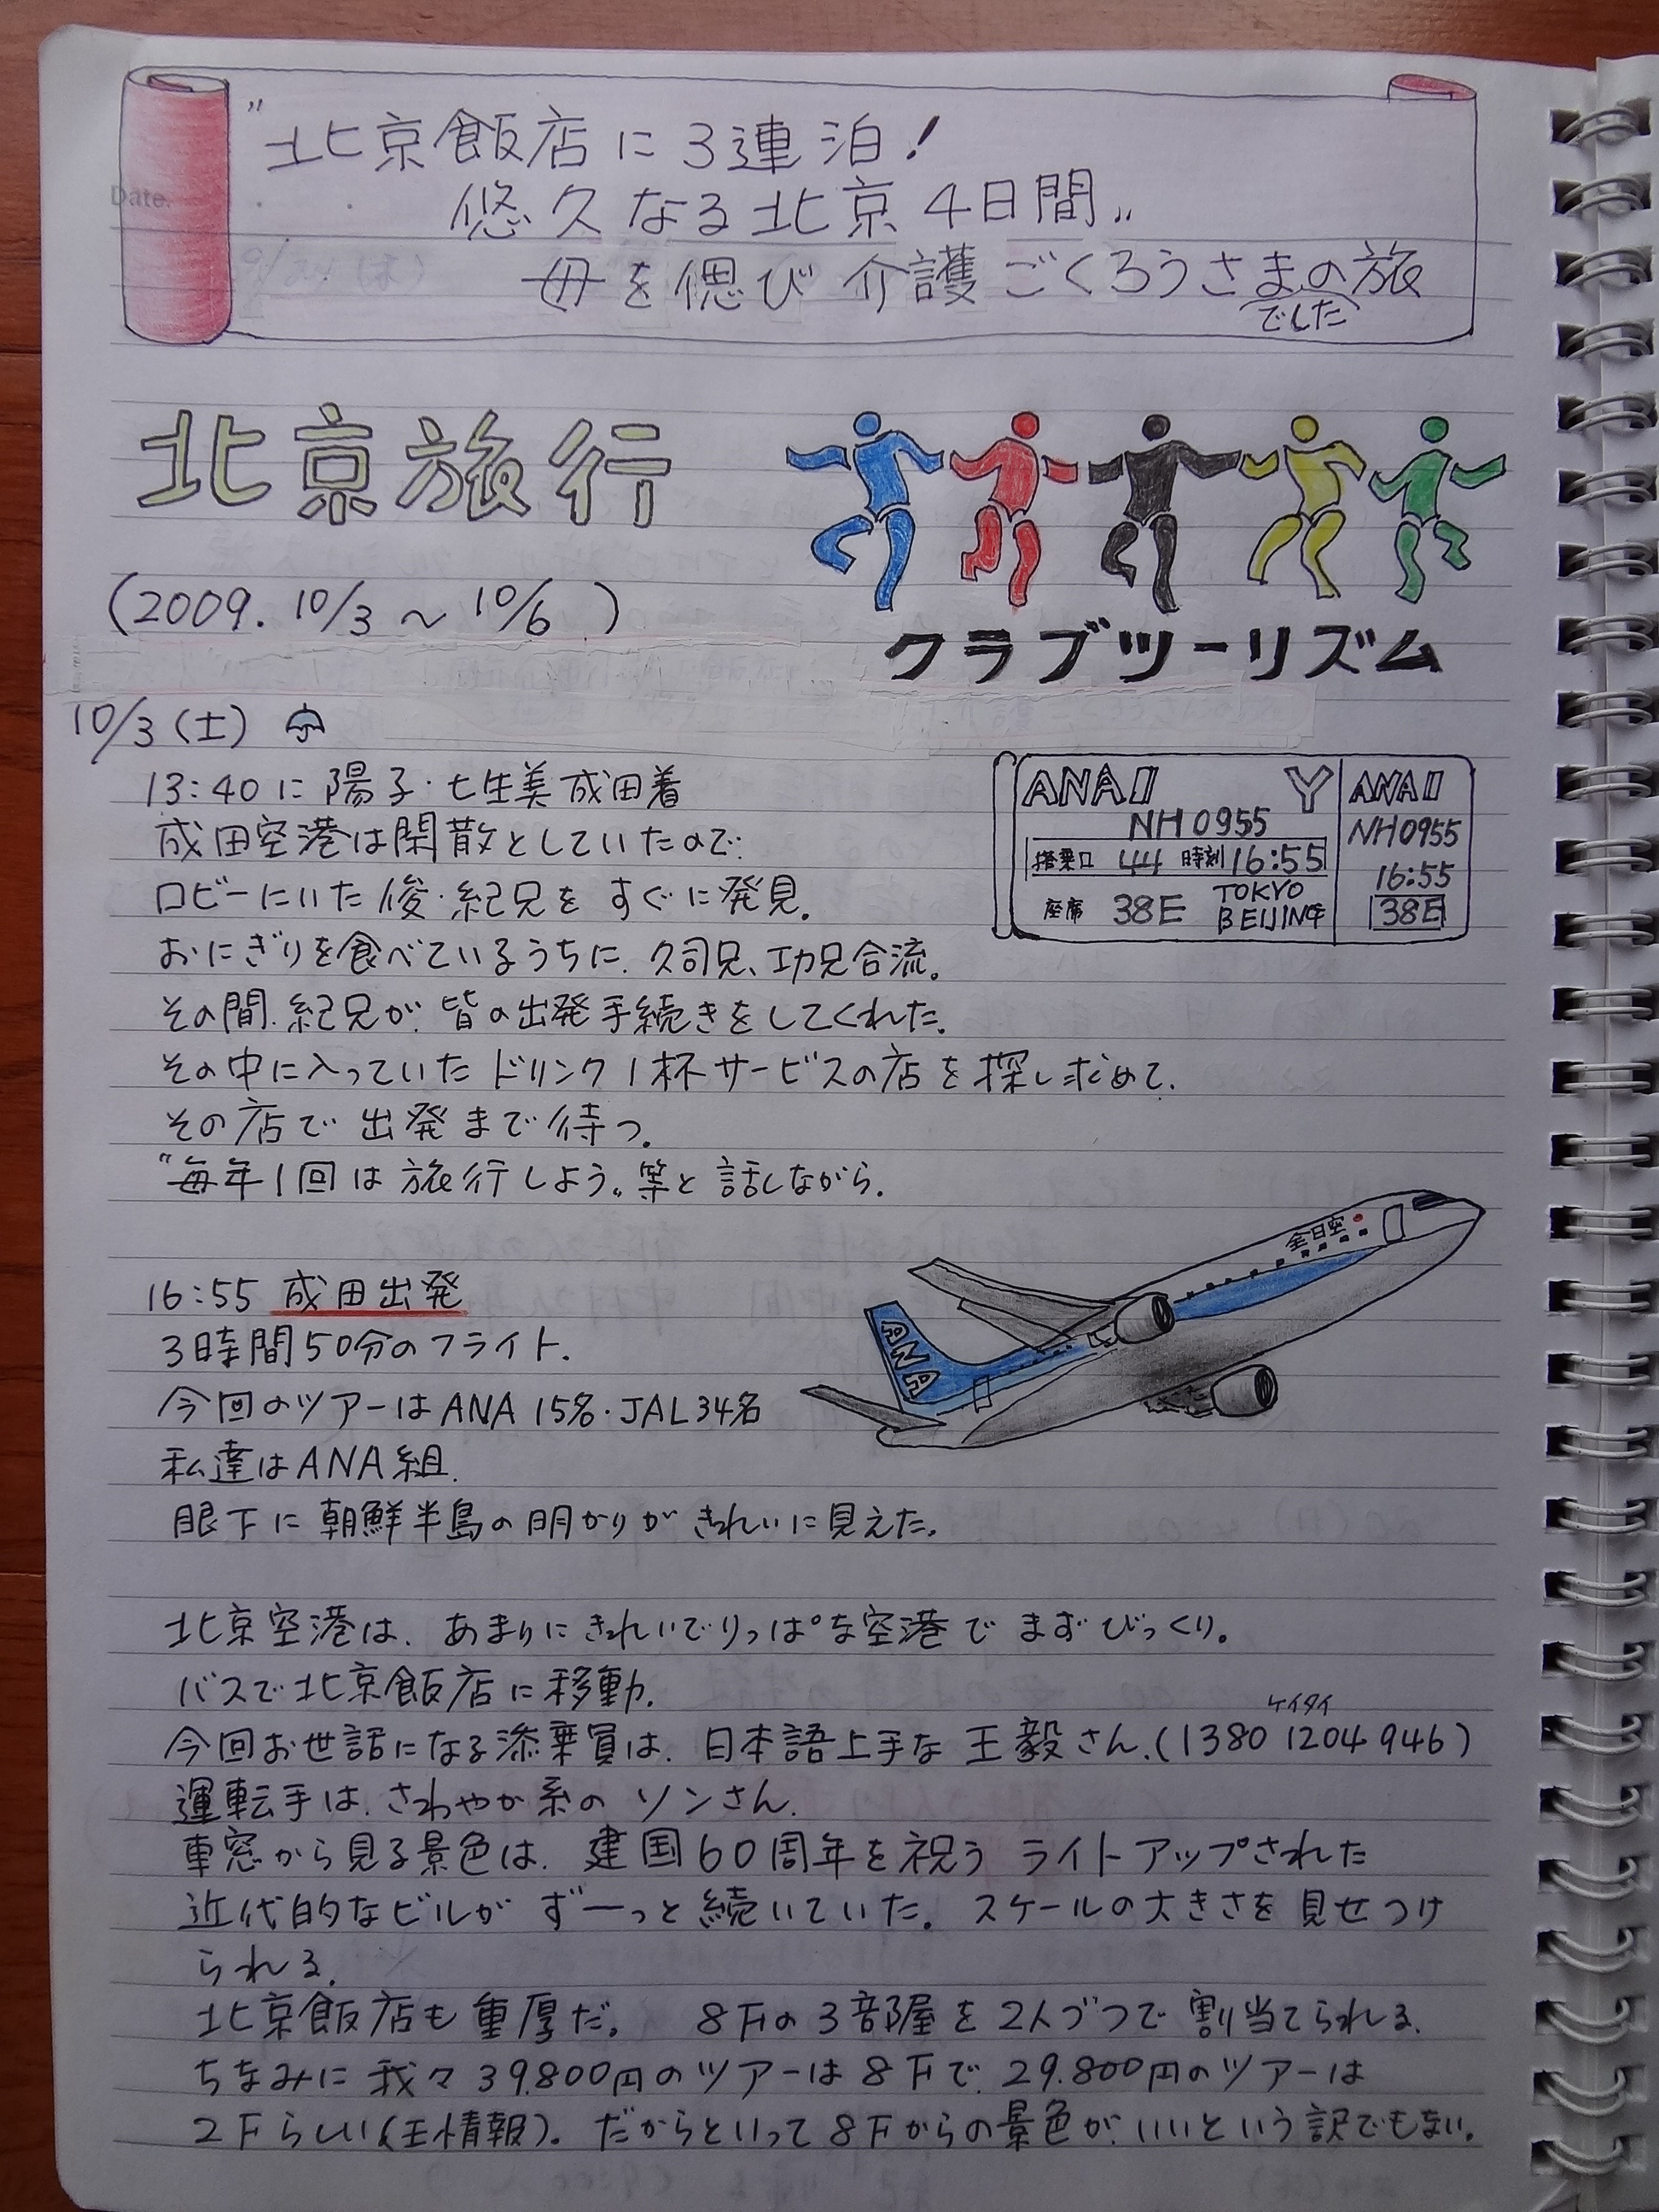 "北京飯店に3連泊!
悠久なる北京4日間"
母を偲び介護ごくろうさまの旅
でした
Date.
北京旅行
(2009. 10/3 ~ 10/6 )
クラブツーリズム
10/3(土)
13:40に 陽子・七生美 成田着
成田空港は閑散としていたので
ロビーにいた俊・紀兄を すぐに発見。
おにぎりを食べているうちに、久司兄、功兄合流。
その間、紀兄が、皆の出発手続きをしてくれた。
その中に入っていた ドリンク1杯サービスの店を探し求めて、
その店で出発まで待つ。
"毎年1回は旅行しよう"等と話しながら。
ANA Y ANA
NH0955 NH0955
搭乗口 44 時刻 16:55 16:55
座席 38E TOKYO BEIJING 38E
16:55 成田出発
3時間50分のフライト。
今回のツアーはANA 15名・JAL34名
私達はANA組。
眼下に朝鮮半島の明かりがきれいに見えた。
全日空
ANA
北京空港は、あまりにきれいでりっぱな空港でまずびっくり。
バスで北京飯店に移動。
ケイタイ
今回お世話になる添乗員は、日本語上手な 王毅さん。(1380 1204 946)
運転手は、さわやか系の ソンさん。
車窓から見る景色は、建国60周年を祝う ライトアップされた
近代的なビルが ずーっと続いていた。 スケールの大きさを見せつけ
られる。
北京飯店も重厚だ。 8Fの3部屋を2人づつで割当てられる。
ちなみに我々39.800円のツアーは8Fで、29.800円のツアーは
2Fらしい(王情報)。だからといって8Fからの景色が、いいという訳でもない。